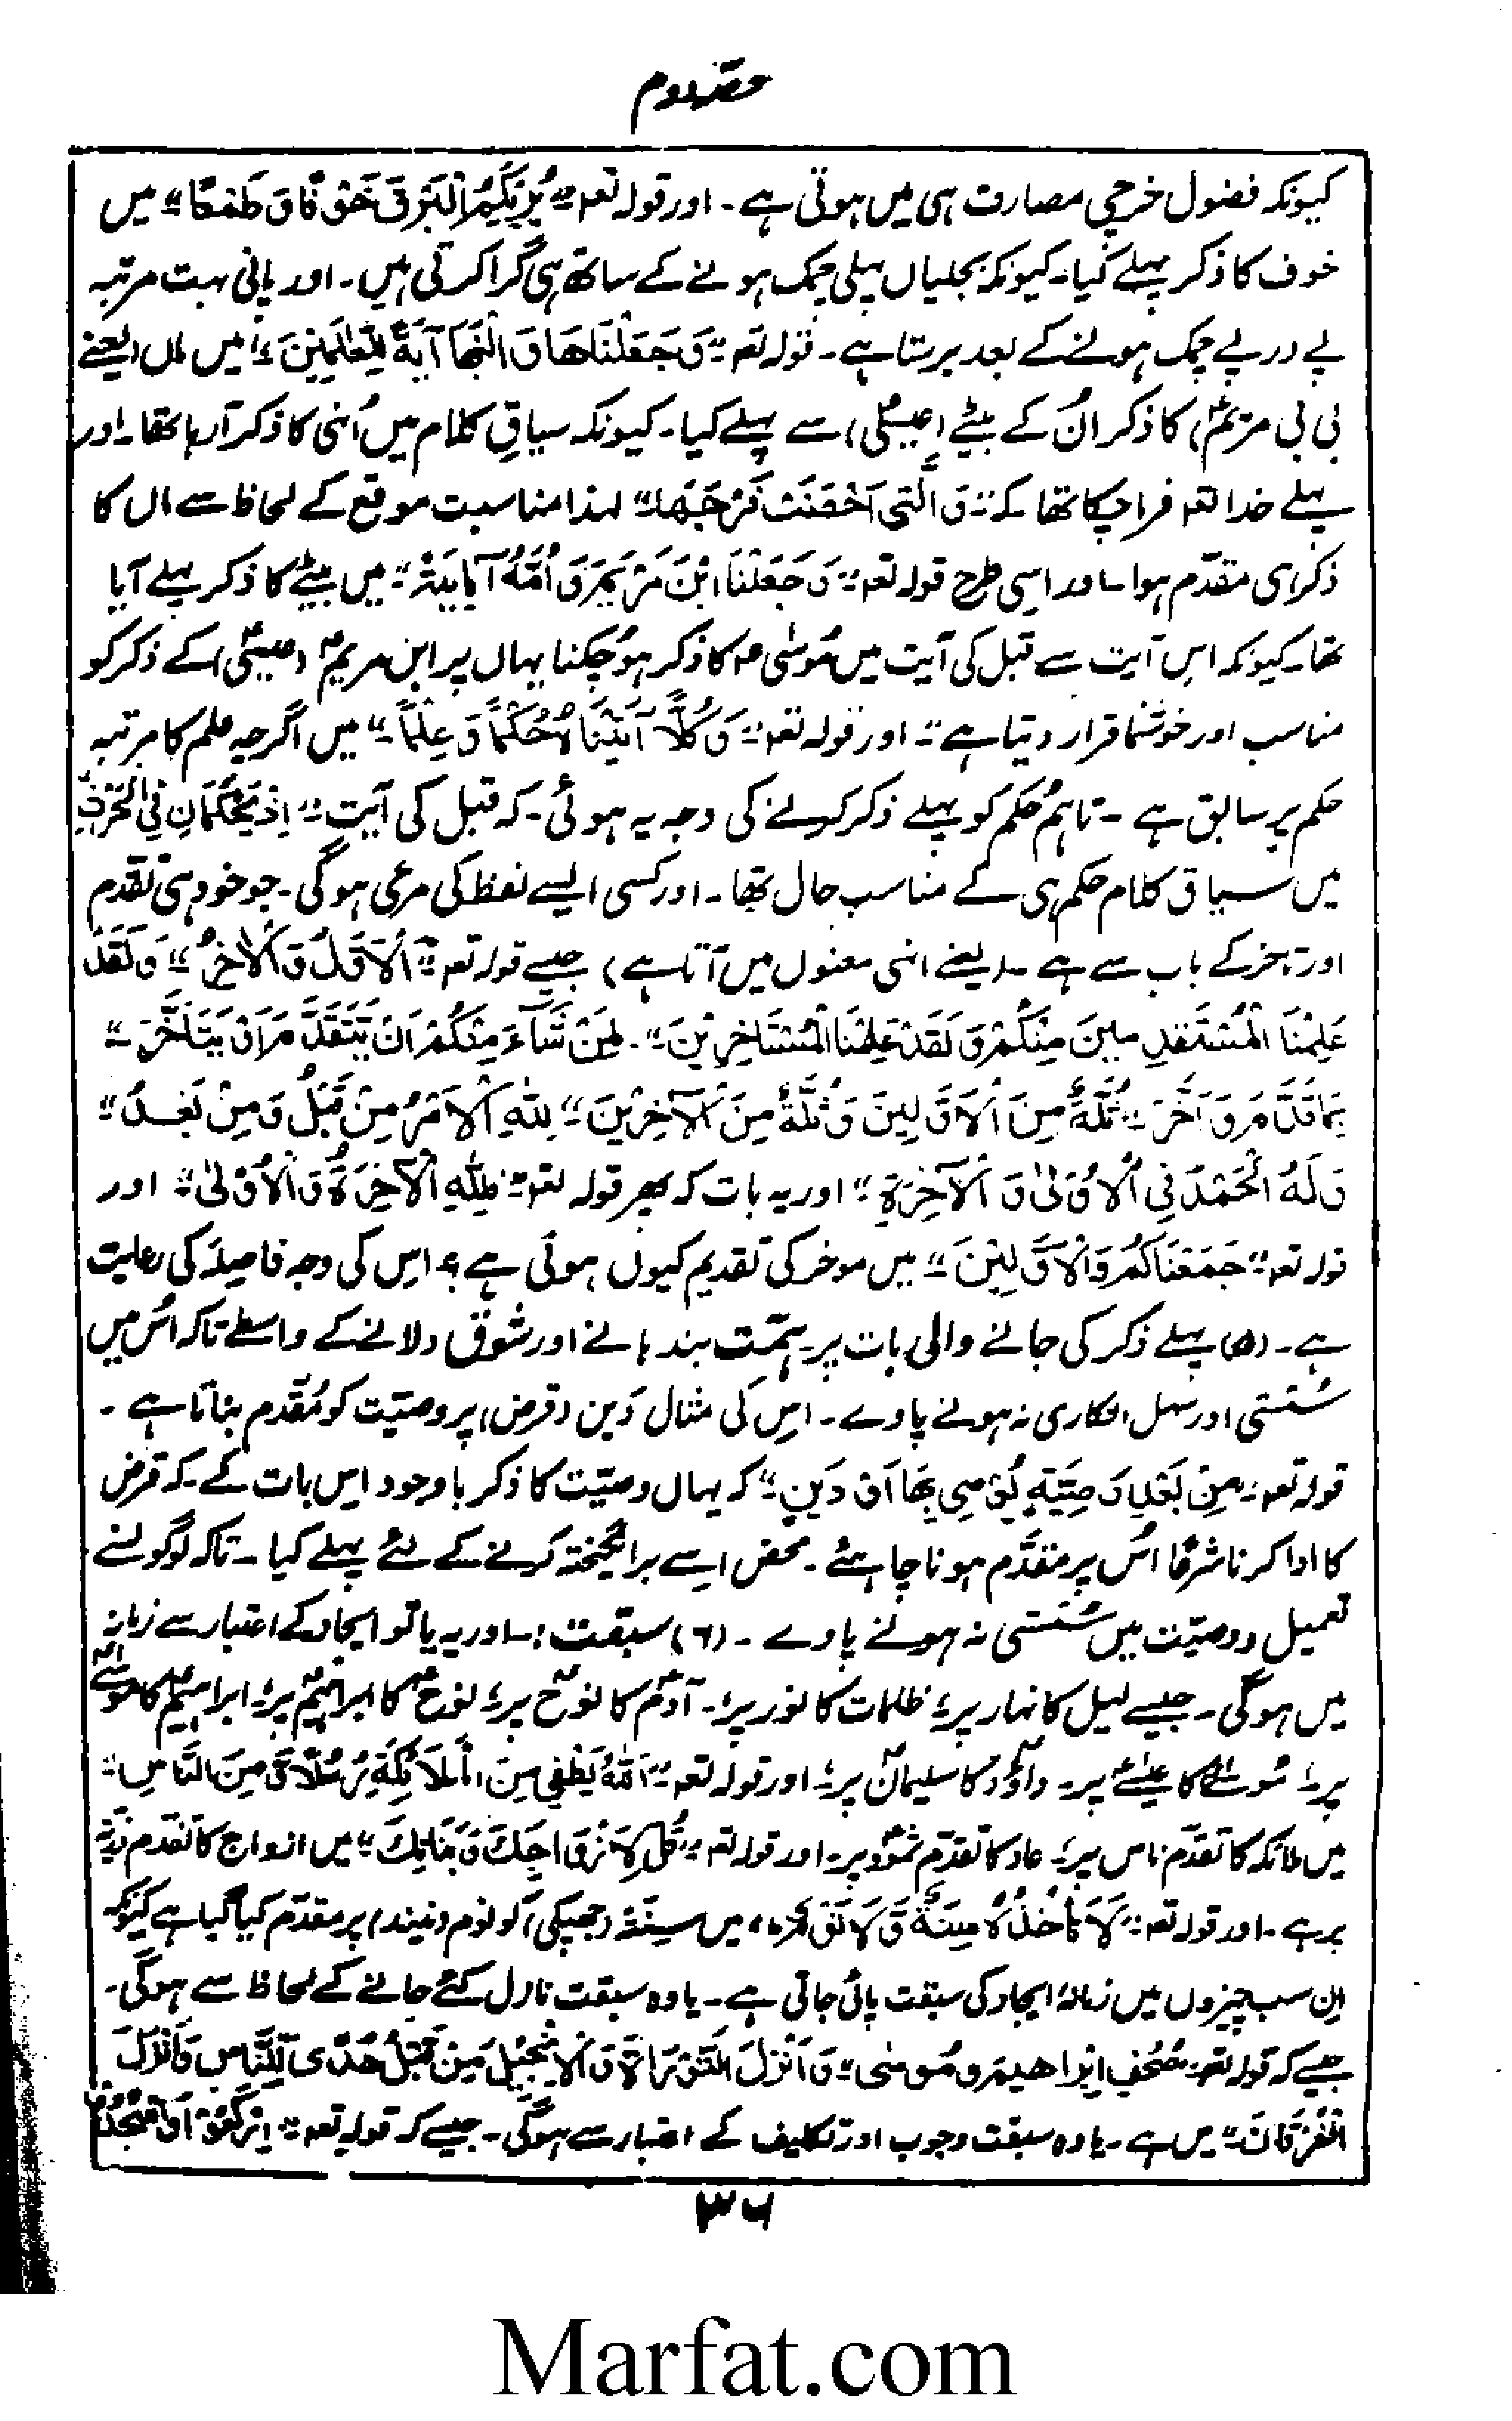 حصّہ دوم
کیونکہ فضول خرچی مصارف ہی میں ہوتی ہے۔ اور قولہ تعہ "یُرِیْکُمُ الْبَرْقَ خَوْفًا وَ طَمَعًا" میں
خوف کا ذکر پہلے کیا۔ کیونکہ بجلیاں پہلی چمک ہونے کے ساتھ ہی گرا کرتی ہیں۔ اور پانی بہت مرتبہ
پے در پے چمک ہونے کے بعد برستا ہے۔ قولہ تعہ "وَ جَعَلْنَاهَا وَ ابْنَهَا آیَةً لِّلْعَالَمِیْنَ" میں ماں (یعنے
بی بی مریمؑ) کا ذکر اُن کے بیٹے (عیسیٰؑ) سے پہلے کیا۔ کیونکہ سیاقِ کلام میں اُنہی کا ذکر آ رہا تھا۔ اور
پہلے خدا تعہ فرما چکا تھا کہ "وَ الَّتِی اَحْصَنَتْ فَرْجَهَا" لہذا مناسبت موقع کے لحاظ سے ماں کا
ذکر ہی مقدّم ہوا۔ اور اسی طرح قولہ تعہ "وَ جَعَلْنَا ابْنَ مَرْیَمَ وَ اُمَّهُ آیَةً" میں بیٹے کا ذکر پہلے آیا
تھا۔ کیونکہ اِس آیت سے قبل کی آیت میں مُوسٰی ؑ کا ذکر ہو چکنا یہاں پر ابن مریم ؑ (عیسیٰؑ) کے ذکر کو
مناسب اور خوشنما قرار دیتا ہے۔ اور قولہ تعہ "وَ کُلًّا آتَیْنَا حُکْمًا وَ عِلْمًا" میں اگرچہ علم کا مرتبہ
حکم پر سابق ہے۔ تاہم حُکم کو پہلے ذکر کرنے کی وجہ یہ ہوئی۔ کہ قبل کی آیت "اِذْ یَحْکُمَانِ فِی الْحَرْثِ"
میں سیاق کلام حکم ہی کے مناسب حال تھا۔ اور کسی ایسے لفظ کی مرعی ہوگی۔ جو خود ہی تقدم
اور تاخر کے باب سے ہے۔ (یعنے انہی معنوں میں آتا ہے) جیسے قولہ تعہ "اَلْاَوَّلُ وَ الْآخِرُ" "وَ لَقَدْ
عَلِمْنَا الْمُسْتَقْدِمِیْنَ مِنْکُمْ وَ لَقَدْ عَلِمْنَا الْمُسْتَاخِرِیْنَ"۔ لِمَنْ شَآءَ مِنْکُمْ اَنْ یَتَقَدَّمَ اَوْ یَتَاَخَّرَ"
بِمَا قَدَّمَ وَ اَخَّرَ" ثُلَّةٌ مِنَ الْاَوَّلِیْنَ وَ ثُلَّةٌ مِنَ الْآخِرِیْنَ" لِلّٰهِ الْاَمْرُ مِنْ قَبْلُ وَ مِنْ بَعْدُ"
وَ لَهُ الْحَمْدُ فِی الْاُوْلٰی وَ الْآخِرَةِ" اور یہ بات کہ پھر قولہ تعہ "فَلِلّٰهِ الْآخِرَةُ وَ الْاُوْلٰی" اور
قولہ تعہ "جَمَعْنَاکُمْ وَ الْاَوَّلِیْنَ" میں موخر کی تقدیم کیوں ہوئی ہے؟ اِس کی وجہ فاصلہ کی رعایت
ہے۔ (۵) پہلے ذکر کی جانے والی بات پر ہمّت بندہانے اور شوق دلانے کے واسطے تاکہ اُس میں
سُستی اور سہل انکاری نہ ہونے پاوے۔ اِس کی مثال دَین (قرض) پر وصیّت کو مُقدّم بنانا ہے۔
قولہ تعہ "مِنْ بَعْدِ وَصِیَّةٍ یُّوْصِی بِهَا اَوْ دَیْنٍ" کہ یہاں وصیّت کا ذکر باوجود اِس بات کے۔ کہ قرض
کا ادا کرنا شرعًا اُس پر مقدّم ہونا چاہئے۔ محض اِسے برانگیختہ کرنے کے لئے پہلے کیا۔ تاکہ لوگوں سے
تعمیل (وصیّت میں سُستی نہ ہونے پاوے۔ (۶) سبقت :۔ اور یہ یا تو ایجاد کے اعتبار سے زمانہ
میں ہوگی۔ جیسے لیل کا نہار پر، ظلمات کا نور پر، آدمؑ کا نوحؑ پر، نوحؑ کا ابراہیمؑ پر، ابراہیمؑ کا موسےٰؑ
پر، مُوسےٰؑ کا عیسےٰؑ پر۔ داؤدؑ کا سلیمانؑ پر، اور قولہ تعہ "اَللّٰهُ یَصْطَفِی مِنَ الْمَلَائِکَةِ رُسُلًا وَّ مِنَ النَّاسِ"
میں ملائکہ کا تقدّم ناس پر، عاد کا تقدّم ثمود پر۔ اور قولہ تعہ "قُلْ لِاَزْوَاجِکَ وَ بَنَاتِکَ" میں ازواج کا تقدم ذُریّہ
پر ہے۔ اور قولہ تعہ "لَا تَاْخُذُهُ سِنَةٌ وَّ لَا نَوْمٌ" میں سِنَۃ (جھپکی) کو نوم (نیند) پر مقدّم کیا گیا ہے کیونکہ
اِن سب چیزوں میں زمانۂ ایجاد کی سبقت پائی جاتی ہے۔ یا وہ سبقت نازل کئے جانے کے لحاظ سے ہوگی۔
جیسے کہ قولہ تعہ "صُحُفِ اِبْرَاهِیْمَ وَ مُوسٰی" وَ اَنْزَلَ التَّوْرَاةَ وَ الْاِنْجِیْلَ مِنْ قَبْلُ هُدًی لِّلنَّاسِ وَ اَنْزَلَ
الْفُرْقَانَ" میں ہے۔ یا وہ سبقت وجوب اور تکلیف کے اعتبار سے ہوگی۔ جیسے کہ قولہ تعہ "اِرْکَعُوْا وَ اسْجُدُوْا
۳۶
Marfat.com